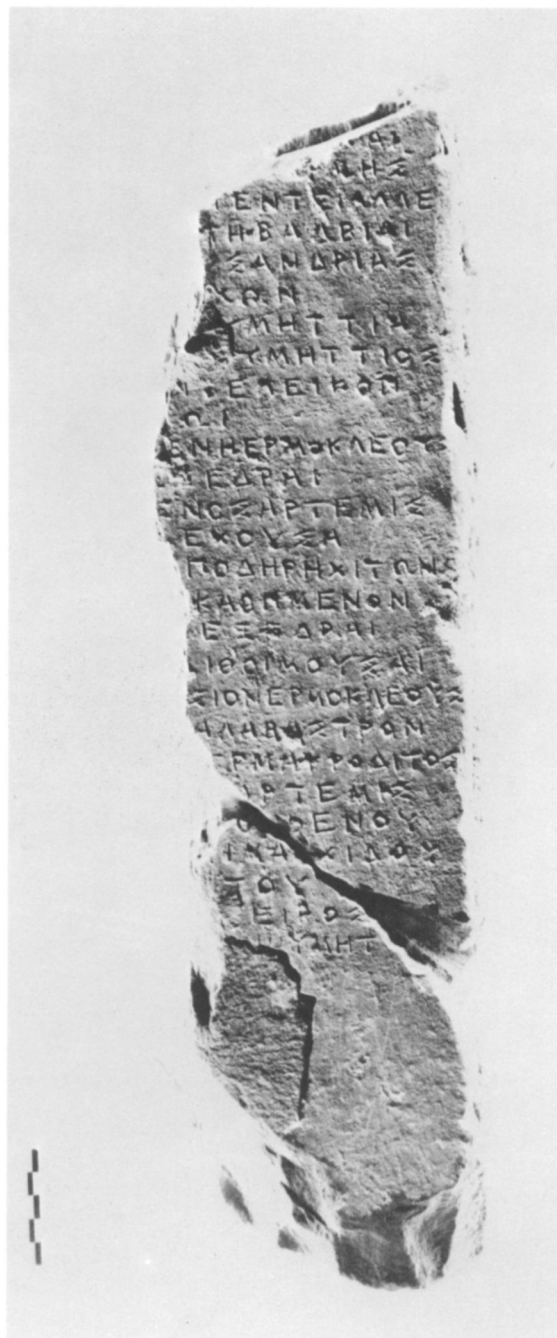 ΑΙ
ΗΣ
ΕΝΤΕΙΑΛΛΕ
ΤΗΒΑΛΒΙΑΙ
ΞΑΝΔΡΙΑΣ
ΧΩΝ
ΥΜΗΤΤΙΑ
ΥΜΗΤΤΙΟΣ
ΕΛΕΙΚΟΠ
ΩΙ
ΕΝΗΕΡΜΟΚΛΕΟΥΣ
ΞΕΔΡΑΙ
ΕΝΟΣΑΡΤΕΜΙΣ
ΕΧΟΥΣΑ
ΠΟΔΗΡΗΧΙΤΩΝΣ
ΚΑΘΗΜΕΝΟΝ
ΕΞΕΔΡΑΙ
ΛΙΘΟΙΚΟΥΣΑΙ
ΣΙΟΝΕΡΜΟΚΛΕΟΥΣ
ΑΛΑΒΑΣΤΡΩΝ
ΕΡΜΑΦΡΟΔΙΤΟΣ
ΑΡΤΕΜΙΣ
ΕΝΟΥ
ΙΚΑΡΧΙΔΟΣ
ΤΟΥ
ΧΕΙΡΟΣ
ΥΜΗΤ